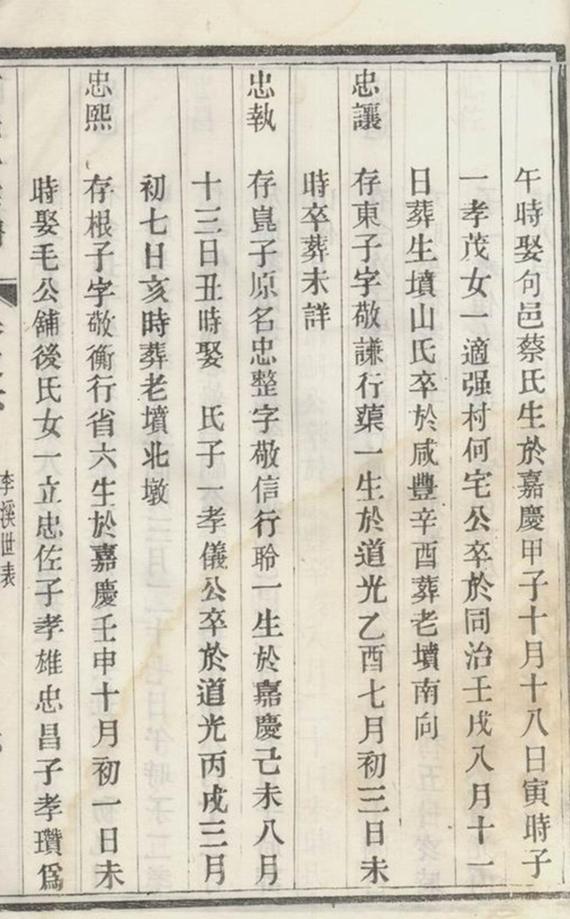 午時娶句邑蔡氏生於嘉慶甲子十月十八日寅時子
一孝茂女一適强村何宅公卒於同治壬戌八月十一
日葬生墳山氏卒於咸豐辛酉葬老墳南向
忠讓 存東子字敬謙行蕖一生於道光乙酉七月初三日未
時卒葬未詳
忠執 存崑子原名忠整字敬信行聆一生於嘉慶己未八月
十三日丑時娶 氏子一孝儀公卒於道光丙戌三月
初七日亥時葬老墳北墩
忠熙 存根子字敬衡行省六生於嘉慶壬申十月初一日未
時娶毛公舖後氏女一立忠佐子孝雄忠昌子孝瓚爲
李溪世表